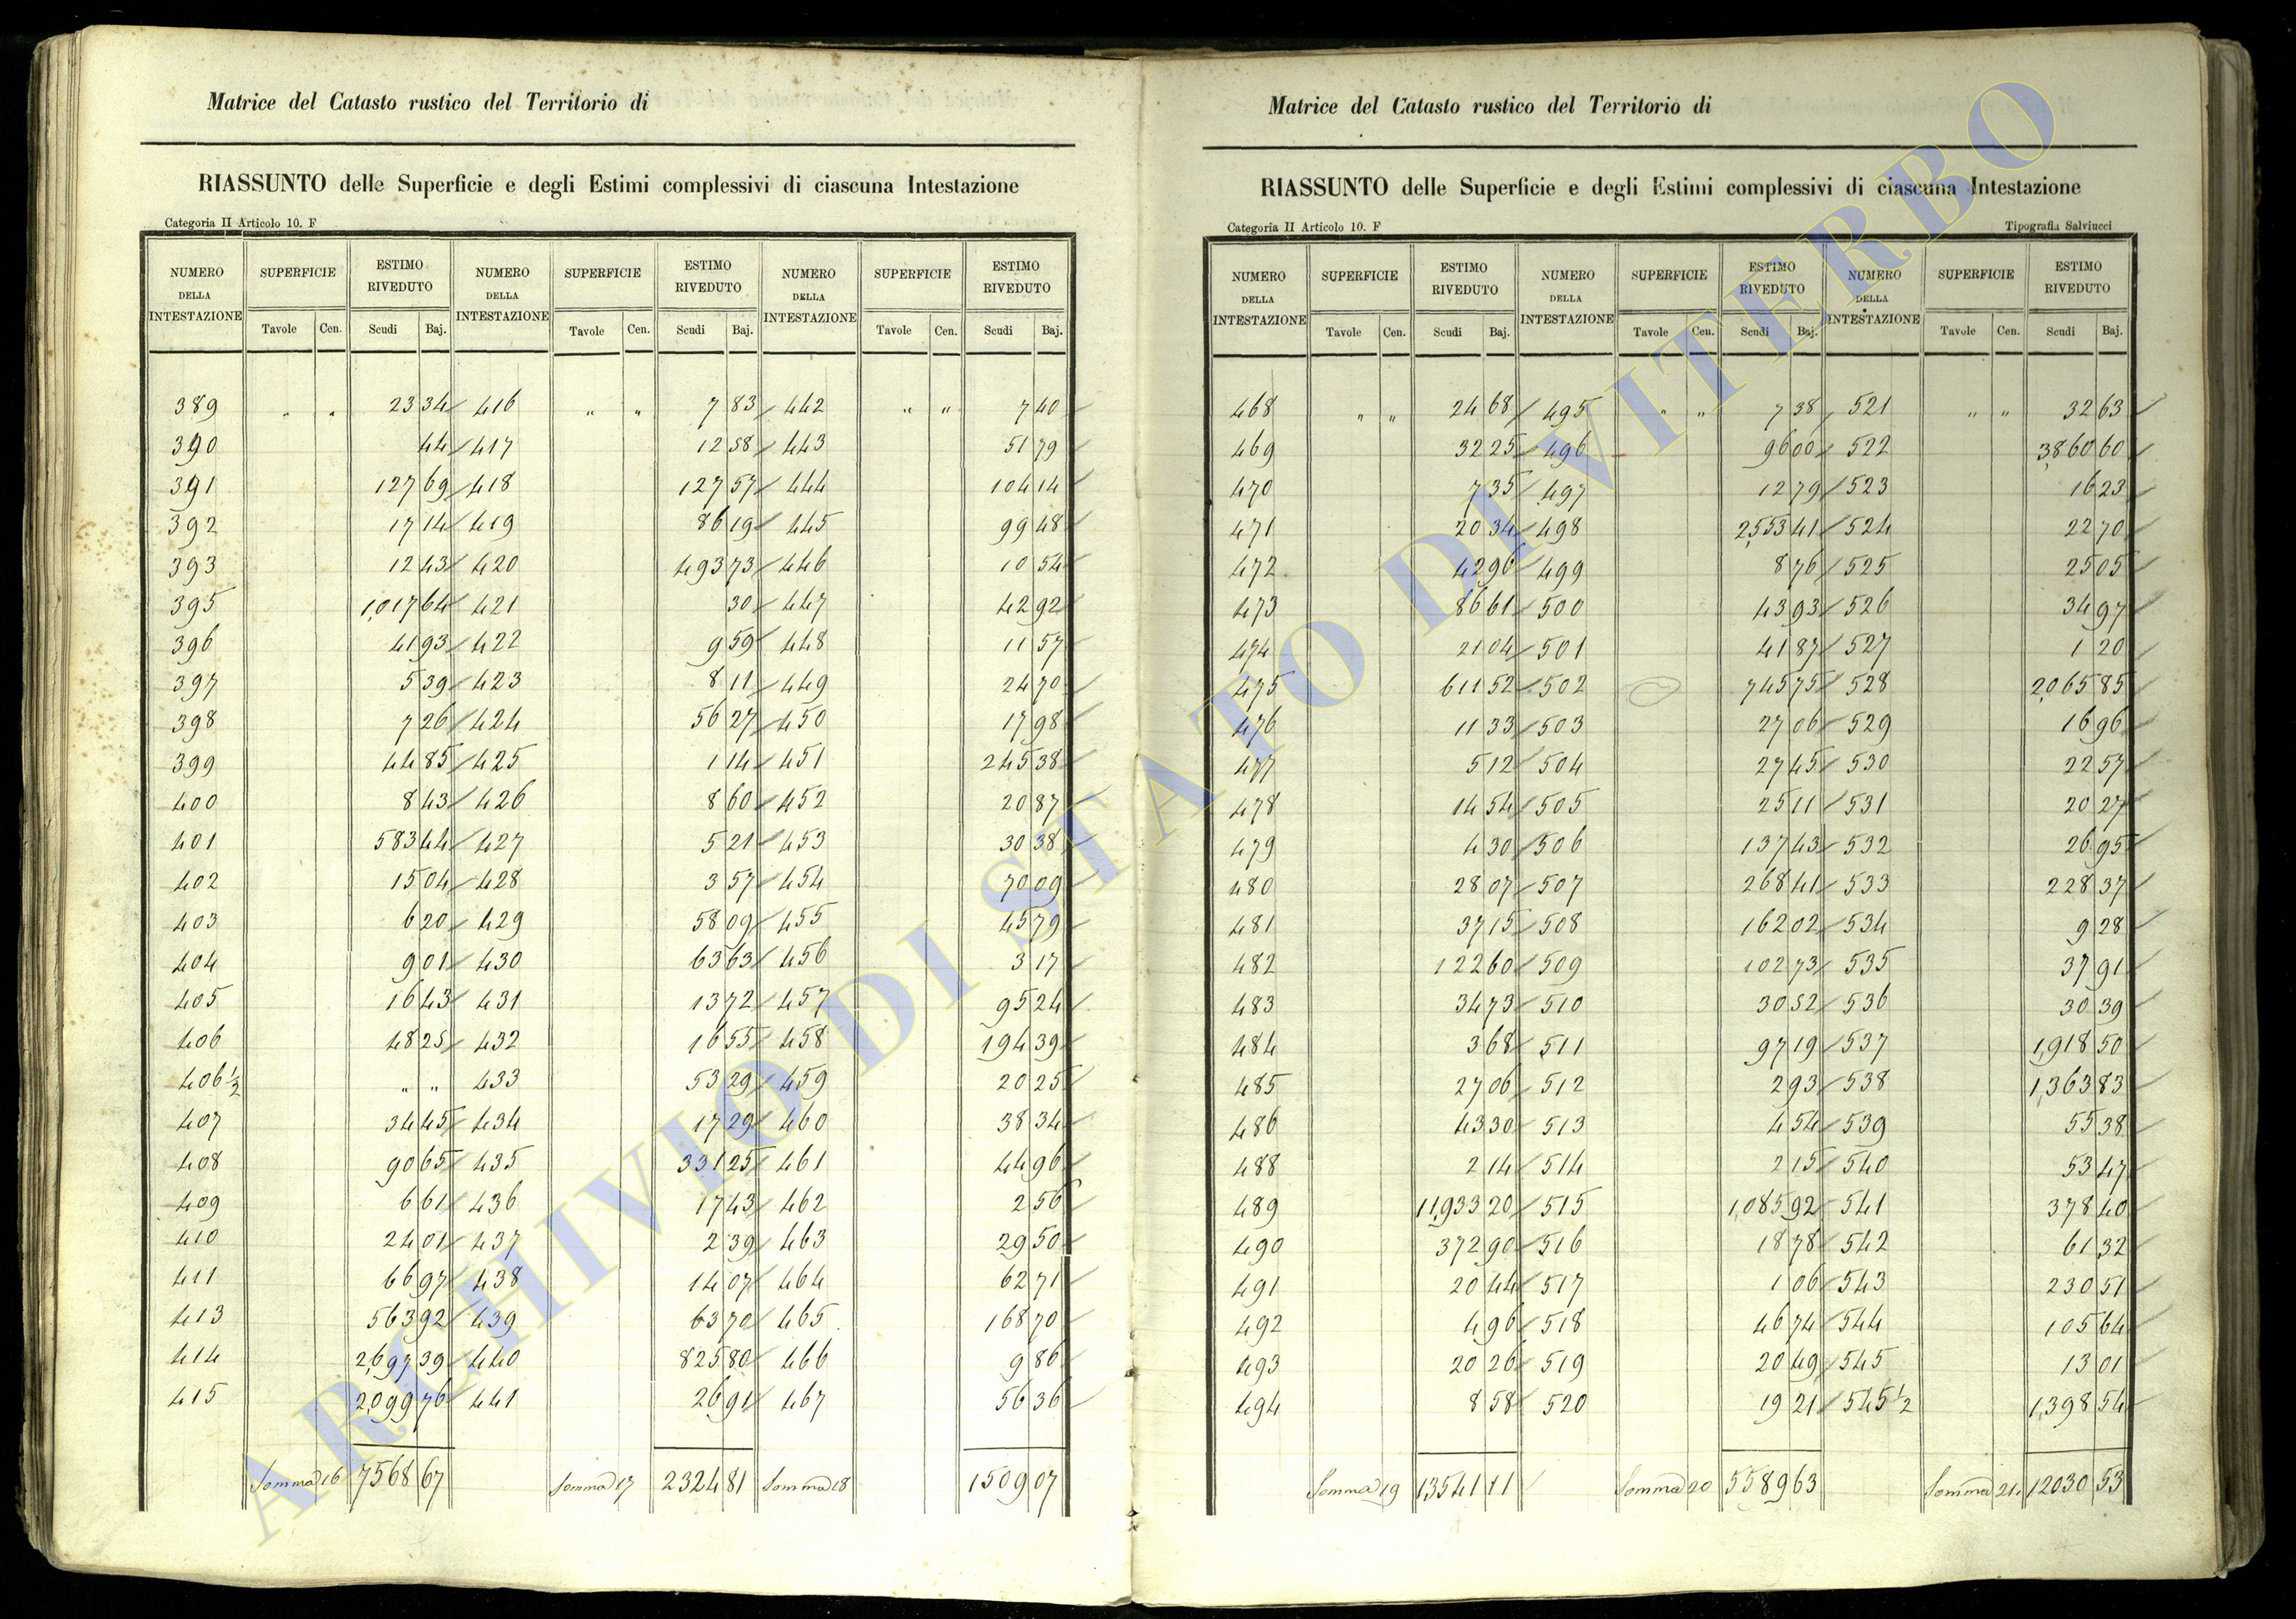 Matrice del Catasto rustico del Territorio di
RIASSUNTO delle Superficie e degli Estimi complessivi di ciascuna Intestazione
Categoria II Articolo 10. F
NUMERO DELLA INTESTAZIONE SUPERFICIE ESTIMO RIVEDUTO NUMERO DELLA INTESTAZIONE SUPERFICIE ESTIMO RIVEDUTO NUMERO DELLA INTESTAZIONE SUPERFICIE ESTIMO RIVEDUTO
Tavole Cen. Scudi Baj. Tavole Cen. Scudi Baj. Tavole Cen. Scudi Baj.
389 " " 23 34 416 " " 7 83 442 " " 7 40
390 44 417 12 58 443 51 79
391 127 69 418 127 57 444 104 14
392 17 14 419 86 19 445 99 48
393 12 43 420 493 73 446 10 54
395 1,017 64 421 30 447 42 92
396 41 93 422 9 59 448 11 57
397 5 39 423 8 11 449 24 70
398 7 26 424 56 27 450 17 98
399 44 85 425 1 14 451 245 38
400 8 43 426 8 60 452 20 87
401 583 44 427 5 21 453 30 38
402 15 04 428 3 57 454 70 09
403 6 20 429 58 09 455 45 79
404 9 01 430 63 63 456 3 17
405 16 43 431 13 72 457 95 24
406 48 25 432 16 55 458 194 39
406 1/2 " " 433 53 29 459 20 25
407 34 45 434 17 29 460 38 34
408 90 65 435 331 25 461 44 96
409 6 61 436 17 43 462 2 56
410 24 01 437 2 39 463 29 50
411 66 97 438 14 07 464 62 71
413 563 92 439 63 70 465 168 70
414 2,697 39 440 825 80 466 9 86
415 2,099 76 441 26 91 467 56 36
Somma 16 7568 67 Somma 17 2324 81 Somma 18 1509 07
Matrice del Catasto rustico del Territorio di
RIASSUNTO delle Superficie e degli Estimi complessivi di ciascuna Intestazione
Categoria II Articolo 10. F Tipografia Salviucci
NUMERO DELLA INTESTAZIONE SUPERFICIE ESTIMO RIVEDUTO NUMERO DELLA INTESTAZIONE SUPERFICIE ESTIMO RIVEDUTO NUMERO DELLA INTESTAZIONE SUPERFICIE ESTIMO RIVEDUTO
Tavole Cen. Scudi Baj. Tavole Cen. Scudi Baj. Tavole Cen. Scudi Baj.
468 " " 24 68 495 " " 7 38 521 " " 32 63
469 32 25 496 96 00 522 3,860 60
470 7 35 497 12 79 523 16 23
471 20 34 498 2,553 41 524 22 70
472 42 96 499 8 76 525 25 05
473 86 61 500 43 93 526 34 97
474 21 04 501 41 87 527 1 20
475 611 52 502 745 75 528 2,065 85
476 11 33 503 27 06 529 16 96
477 5 12 504 27 45 530 22 57
478 14 54 505 25 11 531 20 27
479 4 30 506 137 43 532 26 95
480 28 07 507 268 41 533 228 37
481 37 15 508 162 02 534 9 28
482 122 60 509 102 73 535 37 91
483 34 73 510 30 52 536 30 39
484 3 68 511 97 19 537 1,918 50
485 27 06 512 2 93 538 1,363 83
486 43 30 513 4 54 539 55 38
488 2 14 514 2 15 540 53 47
489 11,933 20 515 1,085 92 541 378 40
490 372 90 516 18 78 542 61 32
491 20 44 517 1 06 543 230 51
492 4 96 518 46 74 544 105 64
493 20 26 519 20 49 545 13 01
494 8 58 520 19 21 545 1/2 1,398 54
Somma 19 13541 11 Somma 20 5589 63 Somma 21. 12030 53
ARCHIVIO DI STATO DI VITERBO